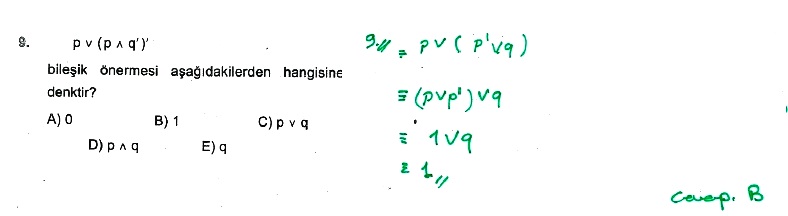 9. p ∨ (p ∧ q′)′
bileşik önermesi aşağıdakilerden hangisine
denktir?
A) 0 B) 1 C) p ∨ q
D) p ∧ q E) q
9.// ≡ p ∨ ( p' ∨ q )
≡ (p ∨ p') ∨ q
≡ 1 ∨ q
≡ 1 //
Cevap. B